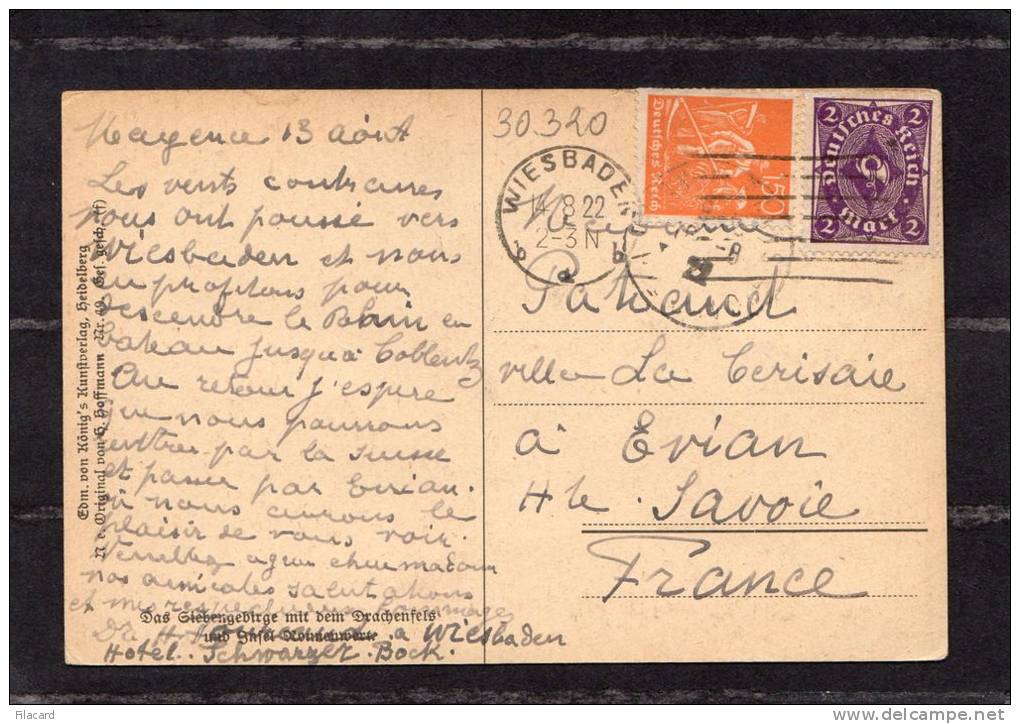 Mayence 13 août
Les vents contraires
nous ont poussé vers
Wiesbaden et nous
en profitons pour
descendre le Rhin en
bateau jusqu'à Coblentz
Au retour j'espère
que nous pourrons
entrer par la Suisse
et passer par Evian.
où nous aurons le
plaisir de vous voir.
Veuillez agréer chère madame
nos amicales salutations
et mes respectueux hommages
Dr a Wiesbaden
Hotel. Schwarzer. Bock.
Das Siebengebirge mit dem Drachenfels
und Insel Nonnenwerth
Edm. von König's Kunstverlag, Heidelberg
N. e. Original von H. Hoffmann Nr. 49 Ges. gesch.
30.320
WIESBADEN
14 8 22
2-3 N
b
Deutsches Reich
150
2 2
Deutsches Reich
Mark
2 2
Madame
villa La Cerisaie
à Evian
Hte. Savoie
France
Filacard
www.delcampe.net